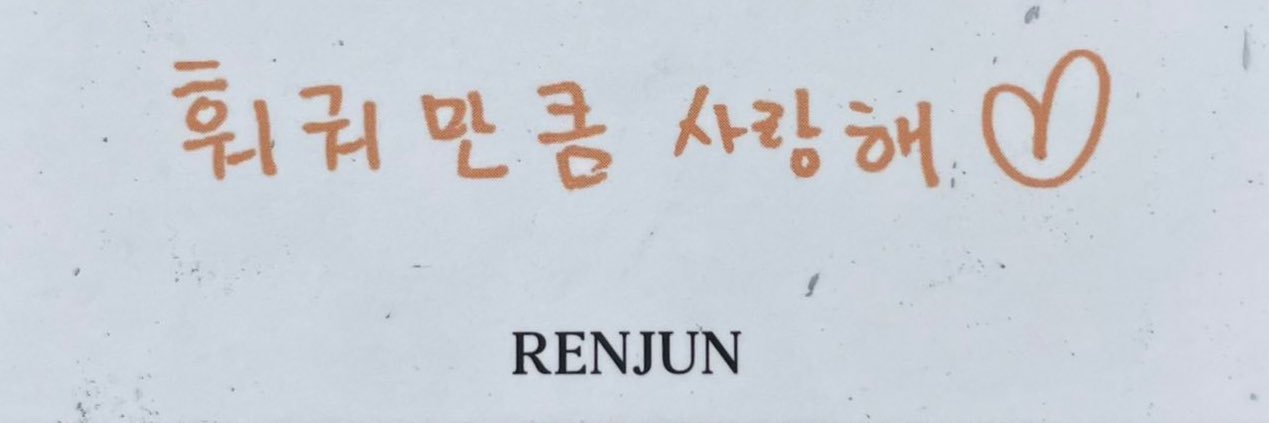 훠궈만큼 사랑해♡
RENJUN